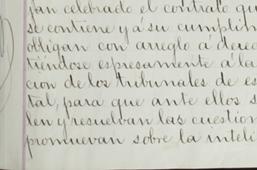 jan celebrado el contrato qu
se contiene y á su cumplim
obligan con arreglo a derec
tiéndose espresamente á la
cion de los tribunales de es
tal, para que ante ellos s
len y resuelvan las cuestion
promuevan sobre la inteli